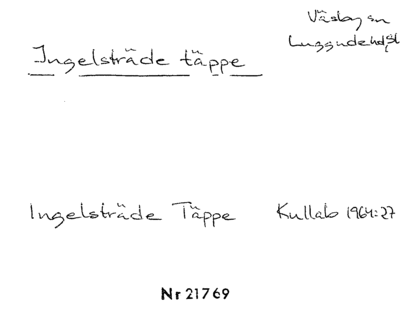 Väsby sn
Luggude hd
Ingelsträde täppe
Ingelsträde Täppe Kullab 1964:27
Nr 21769